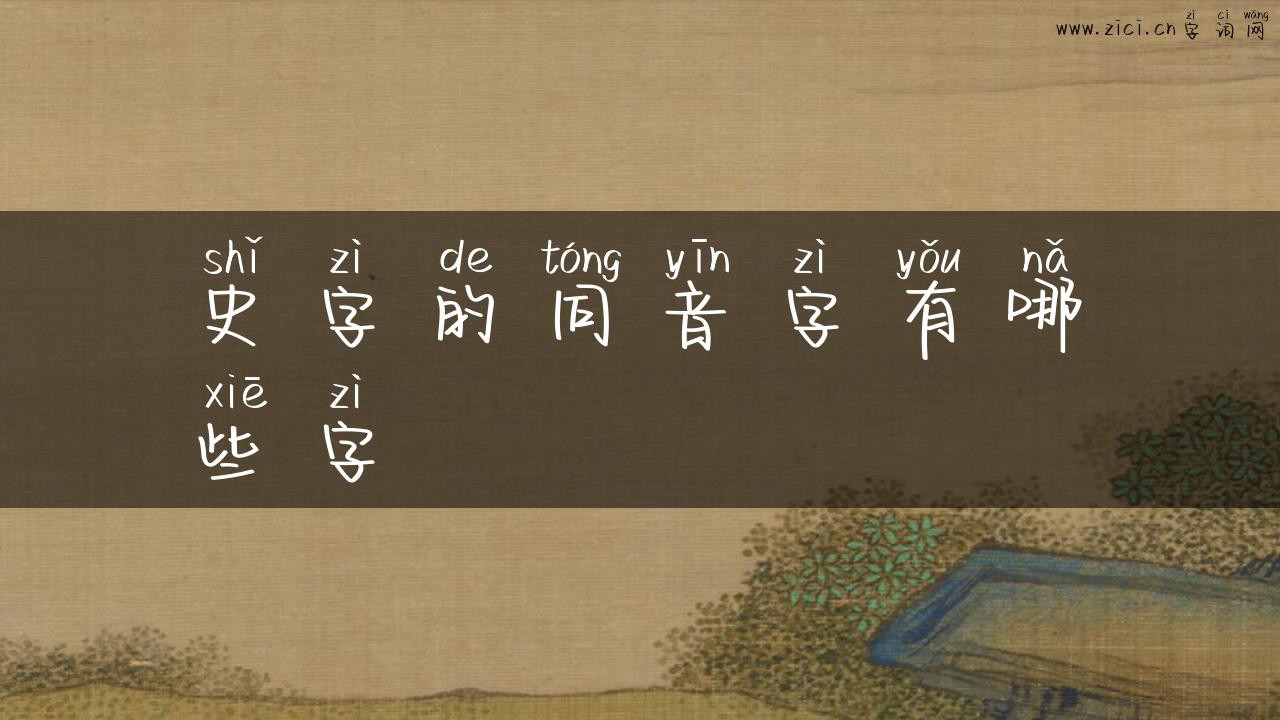 zì cí wǎng
www.zici.cn 字词网
shǐ zì de tóng yīn zì yǒu nǎ
史字的同音字有哪
xiē zì
些字